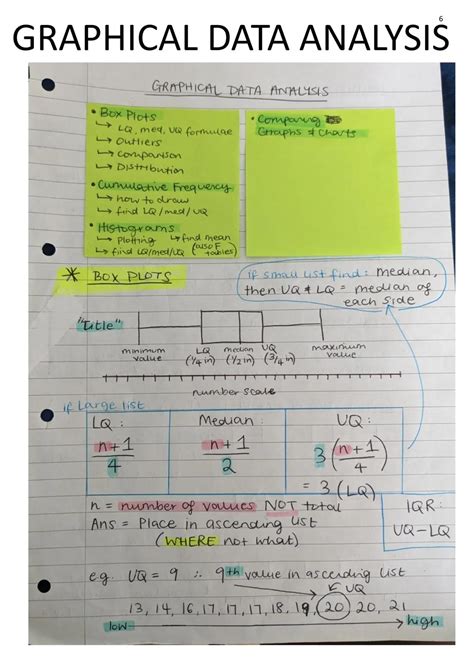 6
GRAPHICAL DATA ANALYSIS
GRAPHICAL DATA ANALYSIS
• Box Plots
↳ LQ, med, UQ formulae
↳ Outliers
↳ Comparison
↳ Distribution
• Cumulative Frequency
↳ how to draw
↳ find LQ/med/UQ
• Histograms
↳ Plotting ↳ find mean
↳ find LQ/med/UQ (also F tables)
• Comparing
Graphs & Charts
* BOX PLOTS
if small list find: median,
then UQ & LQ = median of
each side
"Title"
minimum value
LQ (1/4 in)
median (1/2 in)
UQ (3/4 in)
maximum value
number scale
if Large list
LQ:
n+1
4
Median:
n+1
2
UQ:
3 (n+1
4)
= 3 (LQ)
n = number of values NOT total
Ans = Place in ascending list
(WHERE not what)
IQR:
UQ - LQ
e.g. UQ = 9 ∴ 9th value in ascending list
UQ
13, 14, 16, 17, 17, 17, 18, 19, 20, 20, 21
low high